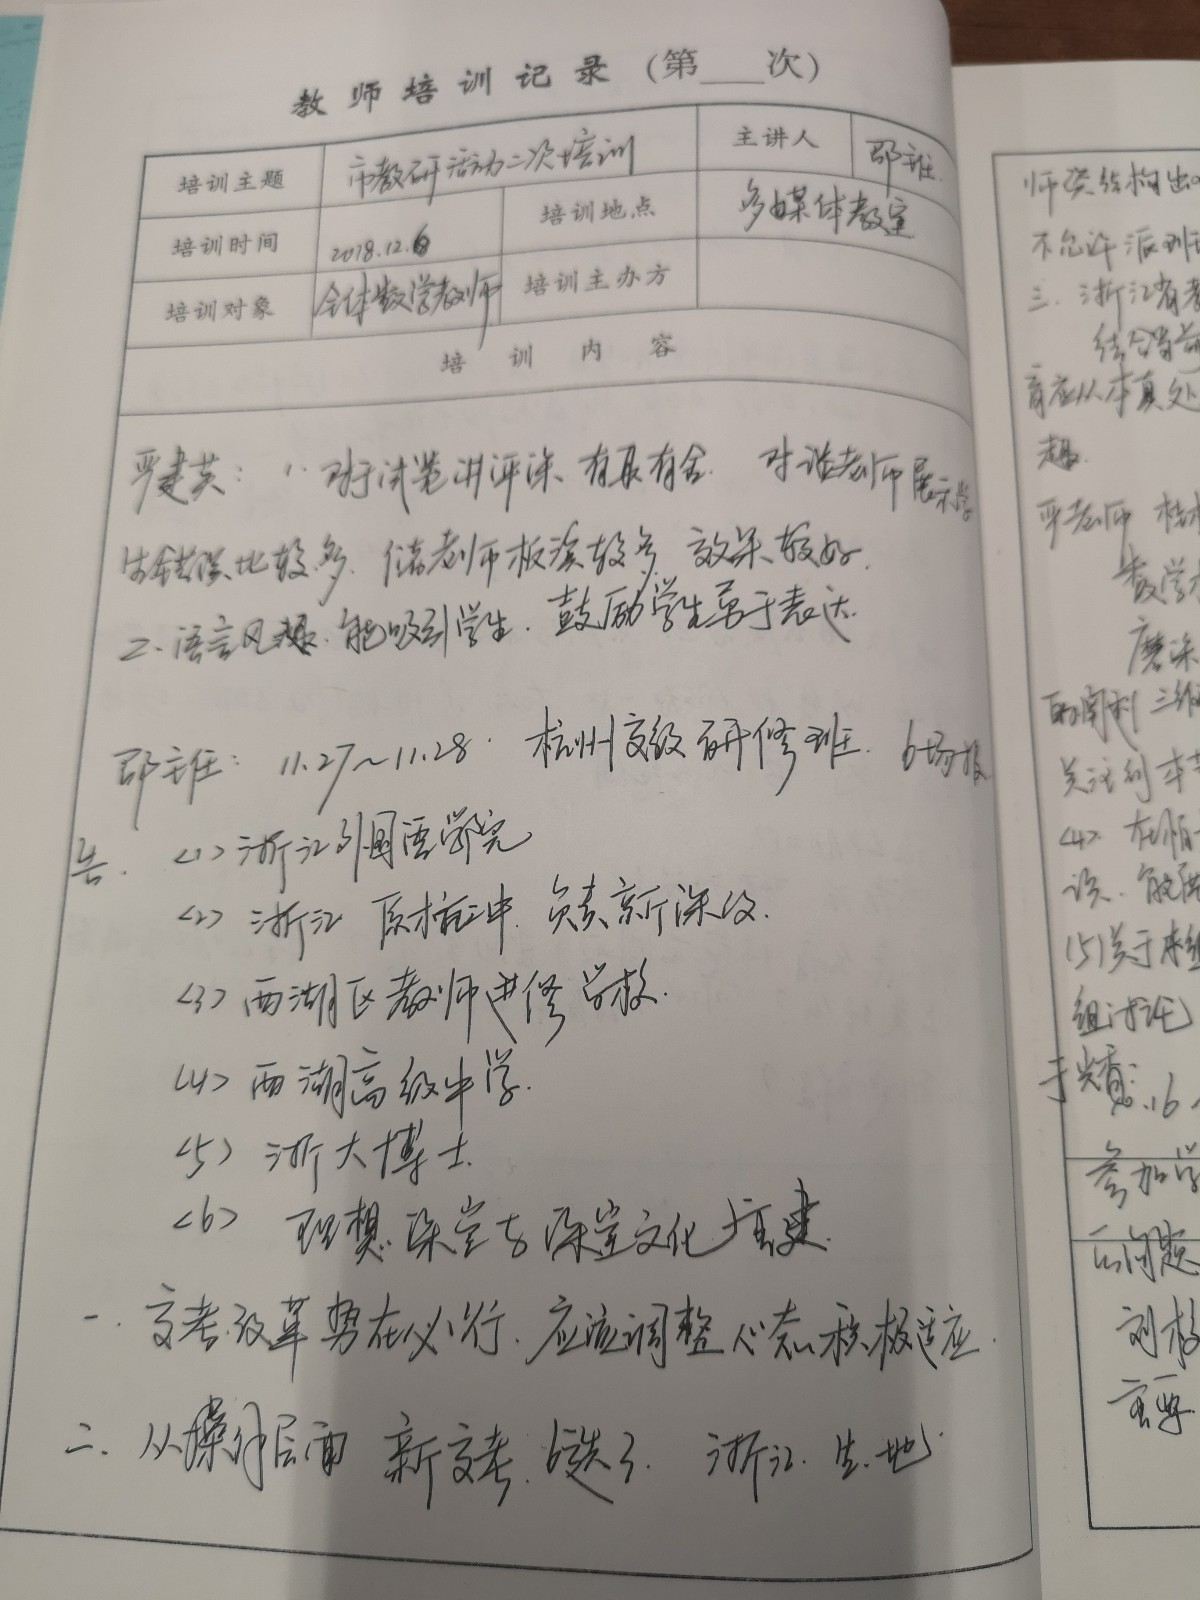 教师培训记录(第___次)
培训主题 市教研活动二次培训 主讲人 邵主任
培训时间 2018.12.6 培训地点 多媒体教室
培训对象 全体数学教师 培训主办方
培训内容
严建英: 1. 对于试卷讲评课、有取有舍. 老师展示学
生错误比较多. 储老师板演较多 效果较好.
2. 语言风趣. 能吸引学生. 鼓励学生勇于表达.
邵主任: 11.27~11.28. 杭州高级研修班. 6场报
告. <1> 浙江外国语学院
<2> 浙江 原杭二中. 负责新课改.
<3> 西湖区教师进修学校.
<4> 西湖高级中学.
<5> 浙大博士.
<6> 理想课堂与课堂文化重建.
一. 高考改革势在必行. 应该调整心态积极适应.
二. 从操作层面 新高考. 6选3. 浙江. 生. 地
师资结构出
不允许派班
三. 浙江省考
结合当前
育应从本真处
趣.
严老师
数学
磨课
关注到本节
<4>
误.
(5)关于
组讨论
参加学
问题
刘校